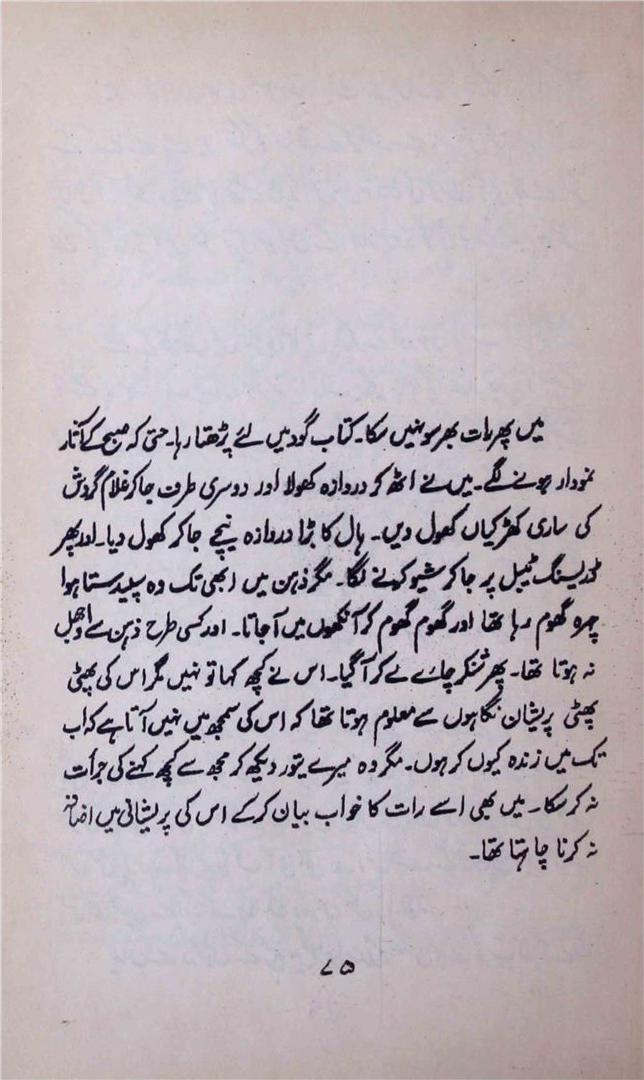 میں پھر رات بھر سو نہیں سکا۔ کتاب گود میں لئے پڑھتا رہا۔ حتیٰ کہ صبح کے آثار
نمودار ہونے لگے۔ میں نے اٹھ کر دروازہ کھولا اور دوسری طرف جا کر غلام گردش
کی ساری کھڑکیاں کھول دیں۔ ہال کا بڑا دروازہ نیچے جا کر کھول دیا۔ اور پھر
ڈریسنگ ٹیبل پر جا کر شیو کرنے لگا۔ مگر ذہن میں ابھی تک وہ سپید ستا ہوا
چہرہ گھوم رہا تھا اور گھوم گھوم کر آنکھوں میں آ جاتا۔ اور کسی طرح ذہن سے اوجھل
نہ ہوتا تھا۔ پھر شنکر چائے لے کر آ گیا۔ اس نے کچھ کہا تو نہیں مگر اس کی پھٹی
پھٹی پریشان نگاہوں سے معلوم ہوتا تھا کہ اس کی سمجھ میں نہیں آتا ہے کہ اب
تک میں زندہ کیوں کر ہوں۔ مگر وہ میرے تیور دیکھ کر مجھ سے کچھ کہنے کی جرأت
نہ کر سکا۔ میں بھی اسے رات کا خواب بیان کر کے اس کی پریشانی میں اضافہ
نہ کرنا چاہتا تھا۔
۷۵